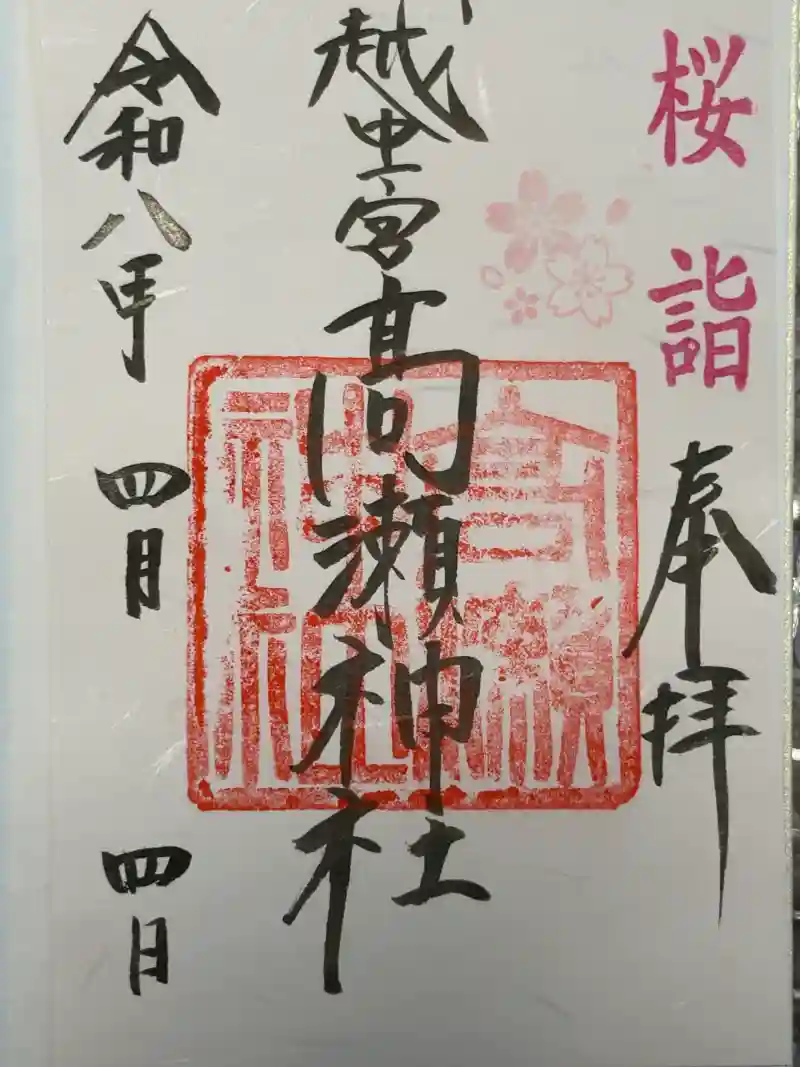 桜詣
奉拝
越中一宮髙瀬神社
髙瀬神社
令和八年四月四日